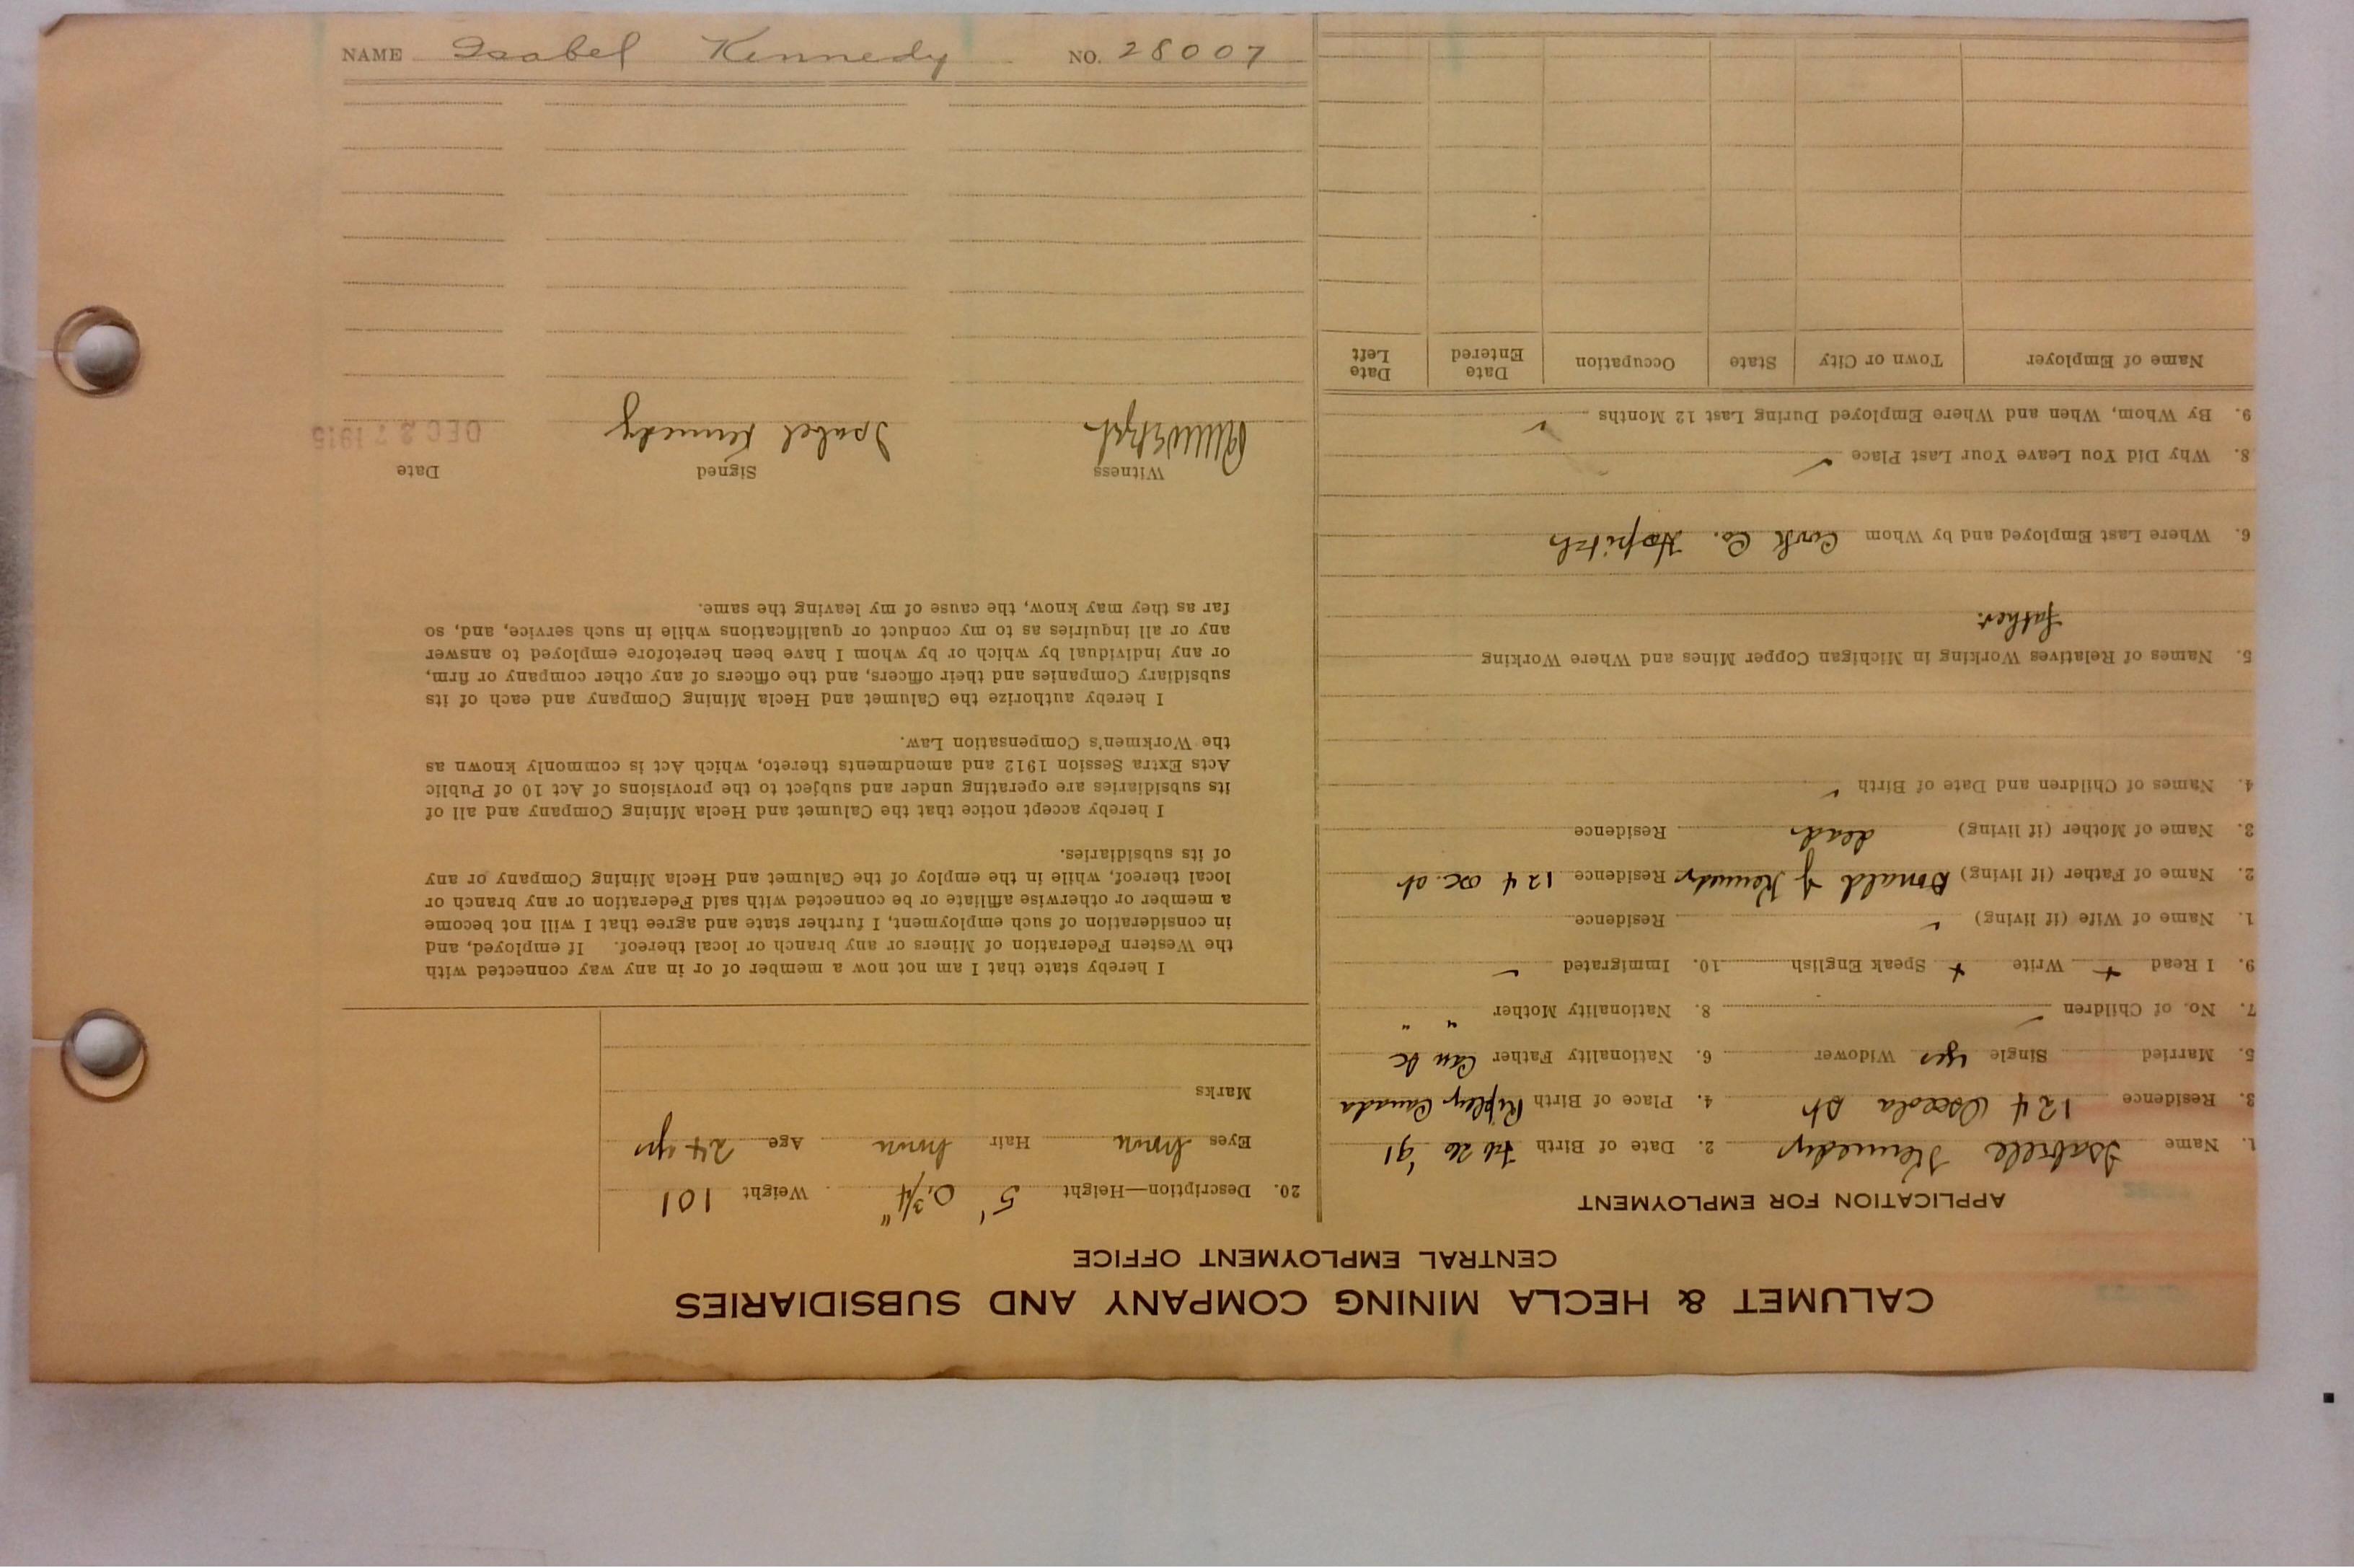 NAME Isabel Kennedy NO. 28007
CALUMET & HECLA MINING COMPANY AND SUBSIDIARIES
CENTRAL EMPLOYMENT OFFICE
APPLICATION FOR EMPLOYMENT
1. Name Isabelle Kennedy 2. Date of Birth Feb 26 '91
3. Residence 124 Osceola St 4. Place of Birth Ripley Canada
5. Married Single yes Widower 6. Nationality Father Can Sc
7. No. of Children ✓ 8. Nationality Mother " "
9. I Read + Write + Speak English 10. Immigrated ✓
1. Name of Wife (if living) ✓ Residence
2. Name of Father (if living) Donald J Kennedy Residence 124 Osc. St
3. Name of Mother (if living) dead Residence
4. Names of Children and Date of Birth ✓
5. Names of Relatives Working in Michigan Copper Mines and Where Working
father.
6. Where Last Employed and by Whom Co.
8. Why Did You Leave Your Last Place ✓
9. By Whom, When and Where Employed During Last 12 Months ✓
Name of Employer Town or City State Occupation Date Entered Date Left
20. Description—Height 5' 0 3/4" Weight 101
Eyes brown Hair brown Age 24 yrs
Marks
I hereby state that I am not now a member of or in any way connected with
the Western Federation of Miners or any branch or local thereof. If employed, and
in consideration of such employment, I further state and agree that I will not become
a member or otherwise affiliate or be connected with said Federation or any branch or
local thereof, while in the employ of the Calumet and Hecla Mining Company or any
of its subsidiaries.
I hereby accept notice that the Calumet and Hecla Mining Company and all of
its subsidiaries are operating under and subject to the provisions of Act 10 of Public
Acts Extra Session 1912 and amendments thereto, which Act is commonly known as
the Workmen's Compensation Law.
I hereby authorize the Calumet and Hecla Mining Company and each of its
subsidiary Companies and their officers, and the officers of any other company or firm,
or any individual by which or by whom I have been heretofore employed to answer
any or all inquiries as to my conduct or qualifications while in such service, and, so
far as they may know, the cause of my leaving the same.
Witness Signed Date
Isabel Kennedy DEC 27 1915